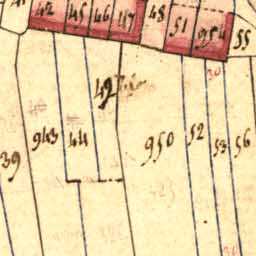 42 45 46 47 48 51 954 55
49
943 44 950 52 53 56
39